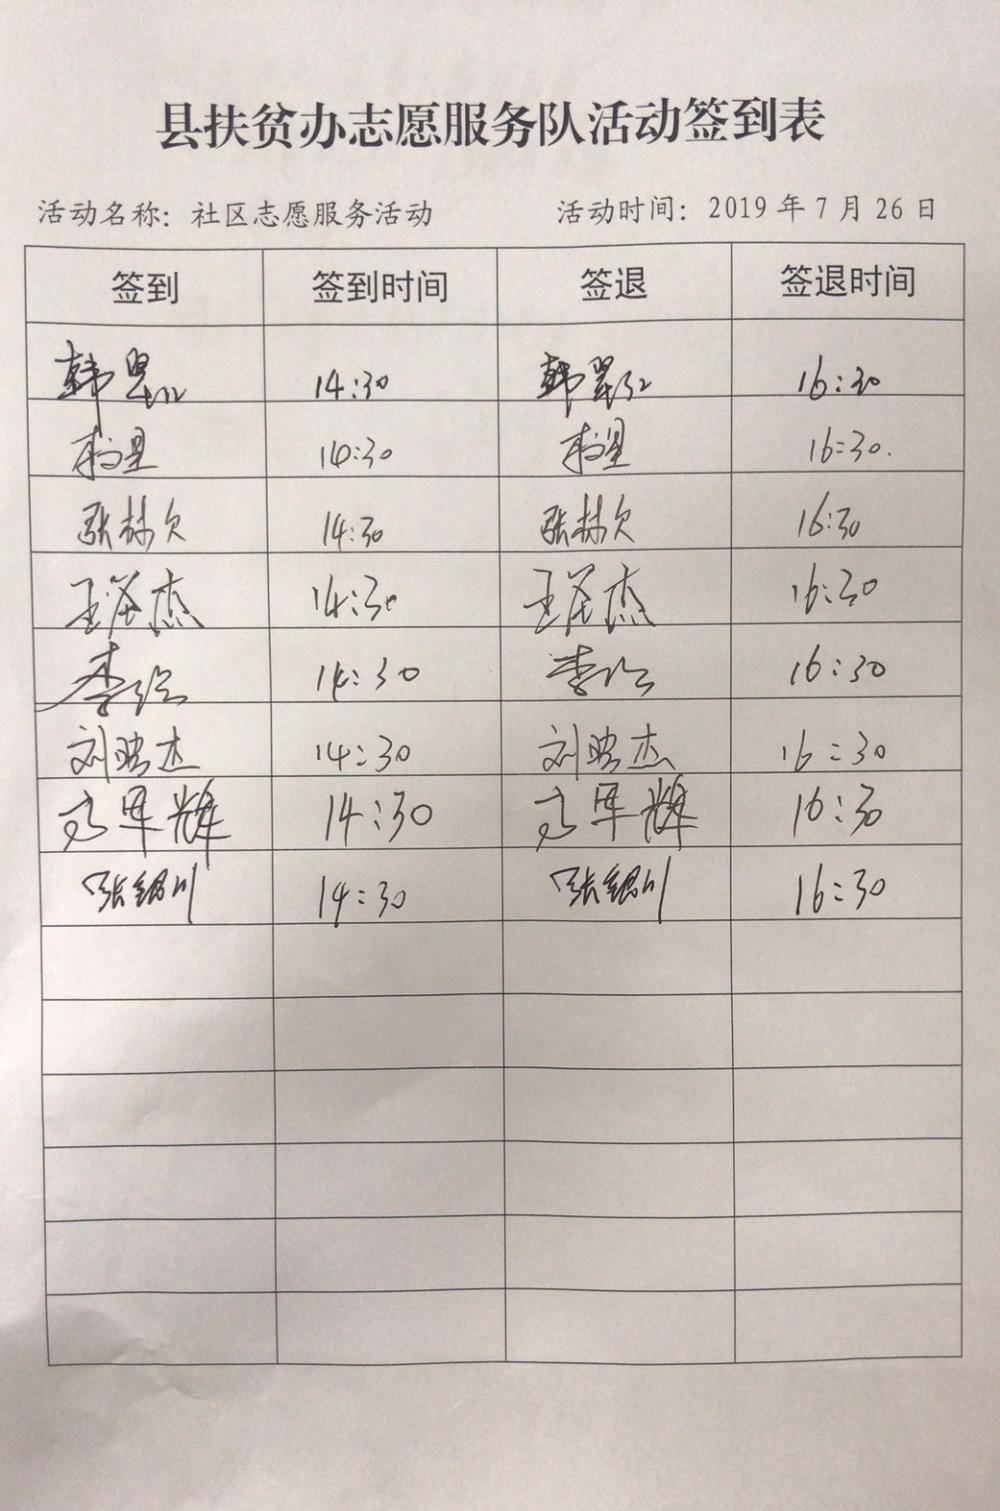 县扶贫办志愿服务队活动签到表
活动名称：社区志愿服务活动 活动时间：2019年7月26日
签到 签到时间 签退 签退时间
韩 14:30 韩 16:30
14:30 16:30.
张林久 14:30 张林久 16:30
王泽杰 14:30 王泽杰 16:30
李 14:30 李 16:30
刘晓杰 14:30 刘晓杰 16:30
高军辉 14:30 高军辉 16:30
张银川 14:30 张银川 16:30